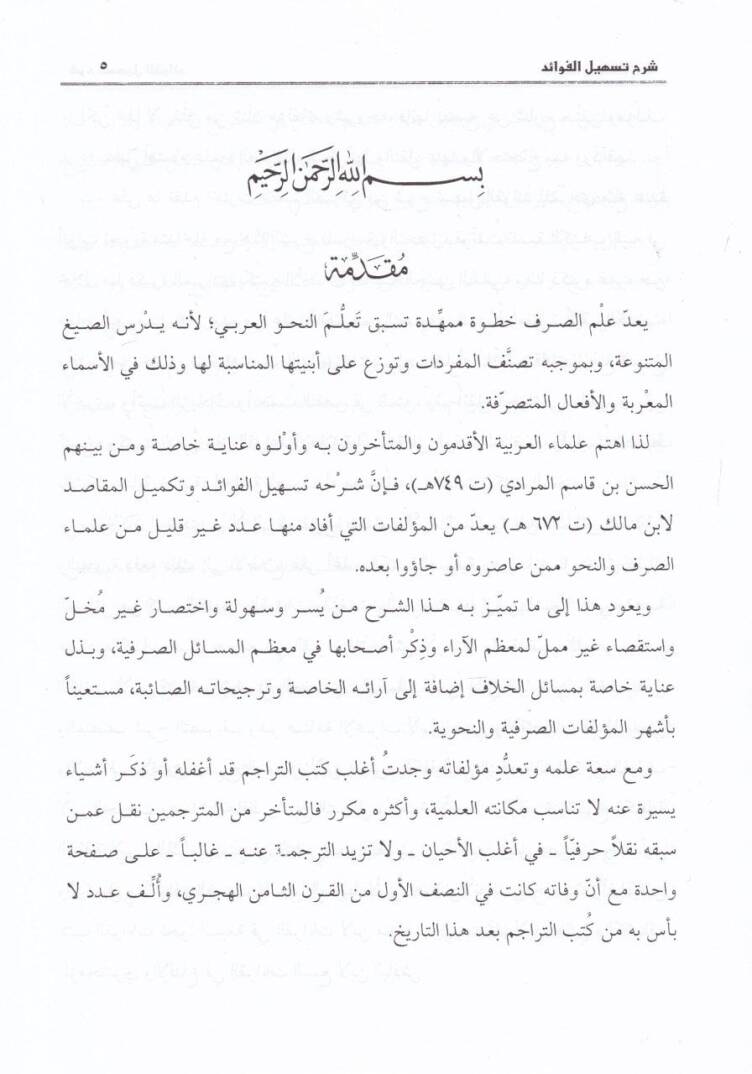 شرح تسهيل الفوائد ٥
بسم الله الرحمن الرحيم
مُقدِّمة
يعدّ علْم الصرف خطوة ممهِّدة تسبق تَعلُّم النحو العربي؛ لأنه يدْرس الصيغ
المتنوعة، وبموجبه تصنَّف المفردات وتوزع على أبنيتها المناسبة لها وذلك في الأسماء
المعْربة والأفعال المتصرفّة.
لذا اهتم علماء العربية الأقدمون والمتأخرون به وأوْلوه عناية خاصة ومن بينهم
الحسن بن قاسم المرادي (ت ٧٤٩هـ)، فإنَّ شرْحه تسهيل الفوائد وتكميل المقاصد
لابن مالك (ت ٦٧٢ هـ) يعدّ من المؤلفات التي أفاد منها عدد غير قليل من علماء
الصرف والنحو ممن عاصروه أو جاؤوا بعده.
ويعود هذا إلى ما تميّز به هذا الشرح من يُسر وسهولة واختصار غير مُخلّ
واستقصاء غير مملّ لمعظم الآراء وذِكْر أصحابها في معظم المسائل الصرفية، وبذل
عناية خاصة بمسائل الخلاف إضافة إلى آرائه الخاصة وترجيحاته الصائبة، مستعيناً
بأشهر المؤلفات الصرفية والنحوية.
ومع سعة علمه وتعدُّد مؤلفاته وجدتُ أغلب كتب التراجم قد أغفله أو ذكَر أشياء
يسيرة عنه لا تناسب مكانته العلمية، وأكثره مكرر فالمتأخر من المترجمين نقل عمن
سبقه نقلاً حرفيّاً ـ في أغلب الأحيان ـ ولا تزيد الترجمة عنه ـ غالباً ـ على صفحة
واحدة مع أنّ وفاته كانت في النصف الأول من القرن الثامن الهجري، وأُلّف عدد لا
بأس به من كُتب التراجم بعد هذا التاريخ.